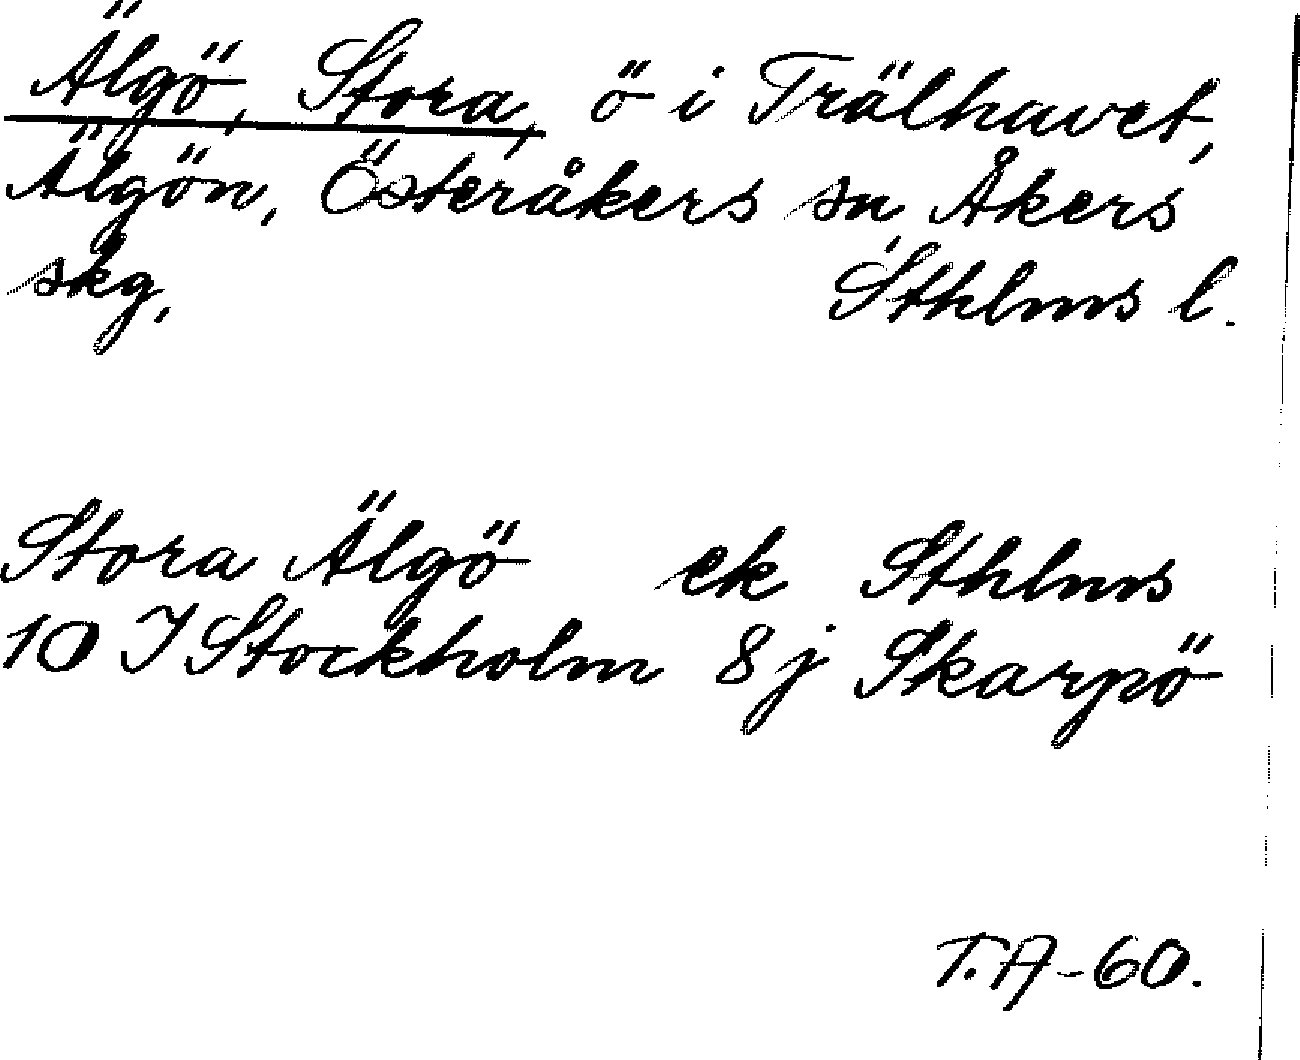 Älgö, Stora, ö i Trälhavet,
Älgön, Österåkers sn, Åkers
skg, Sthlms l.
Stora Älgö ek Sthlms
10 I Stockholm 8 j Skarpö
T.A-60.